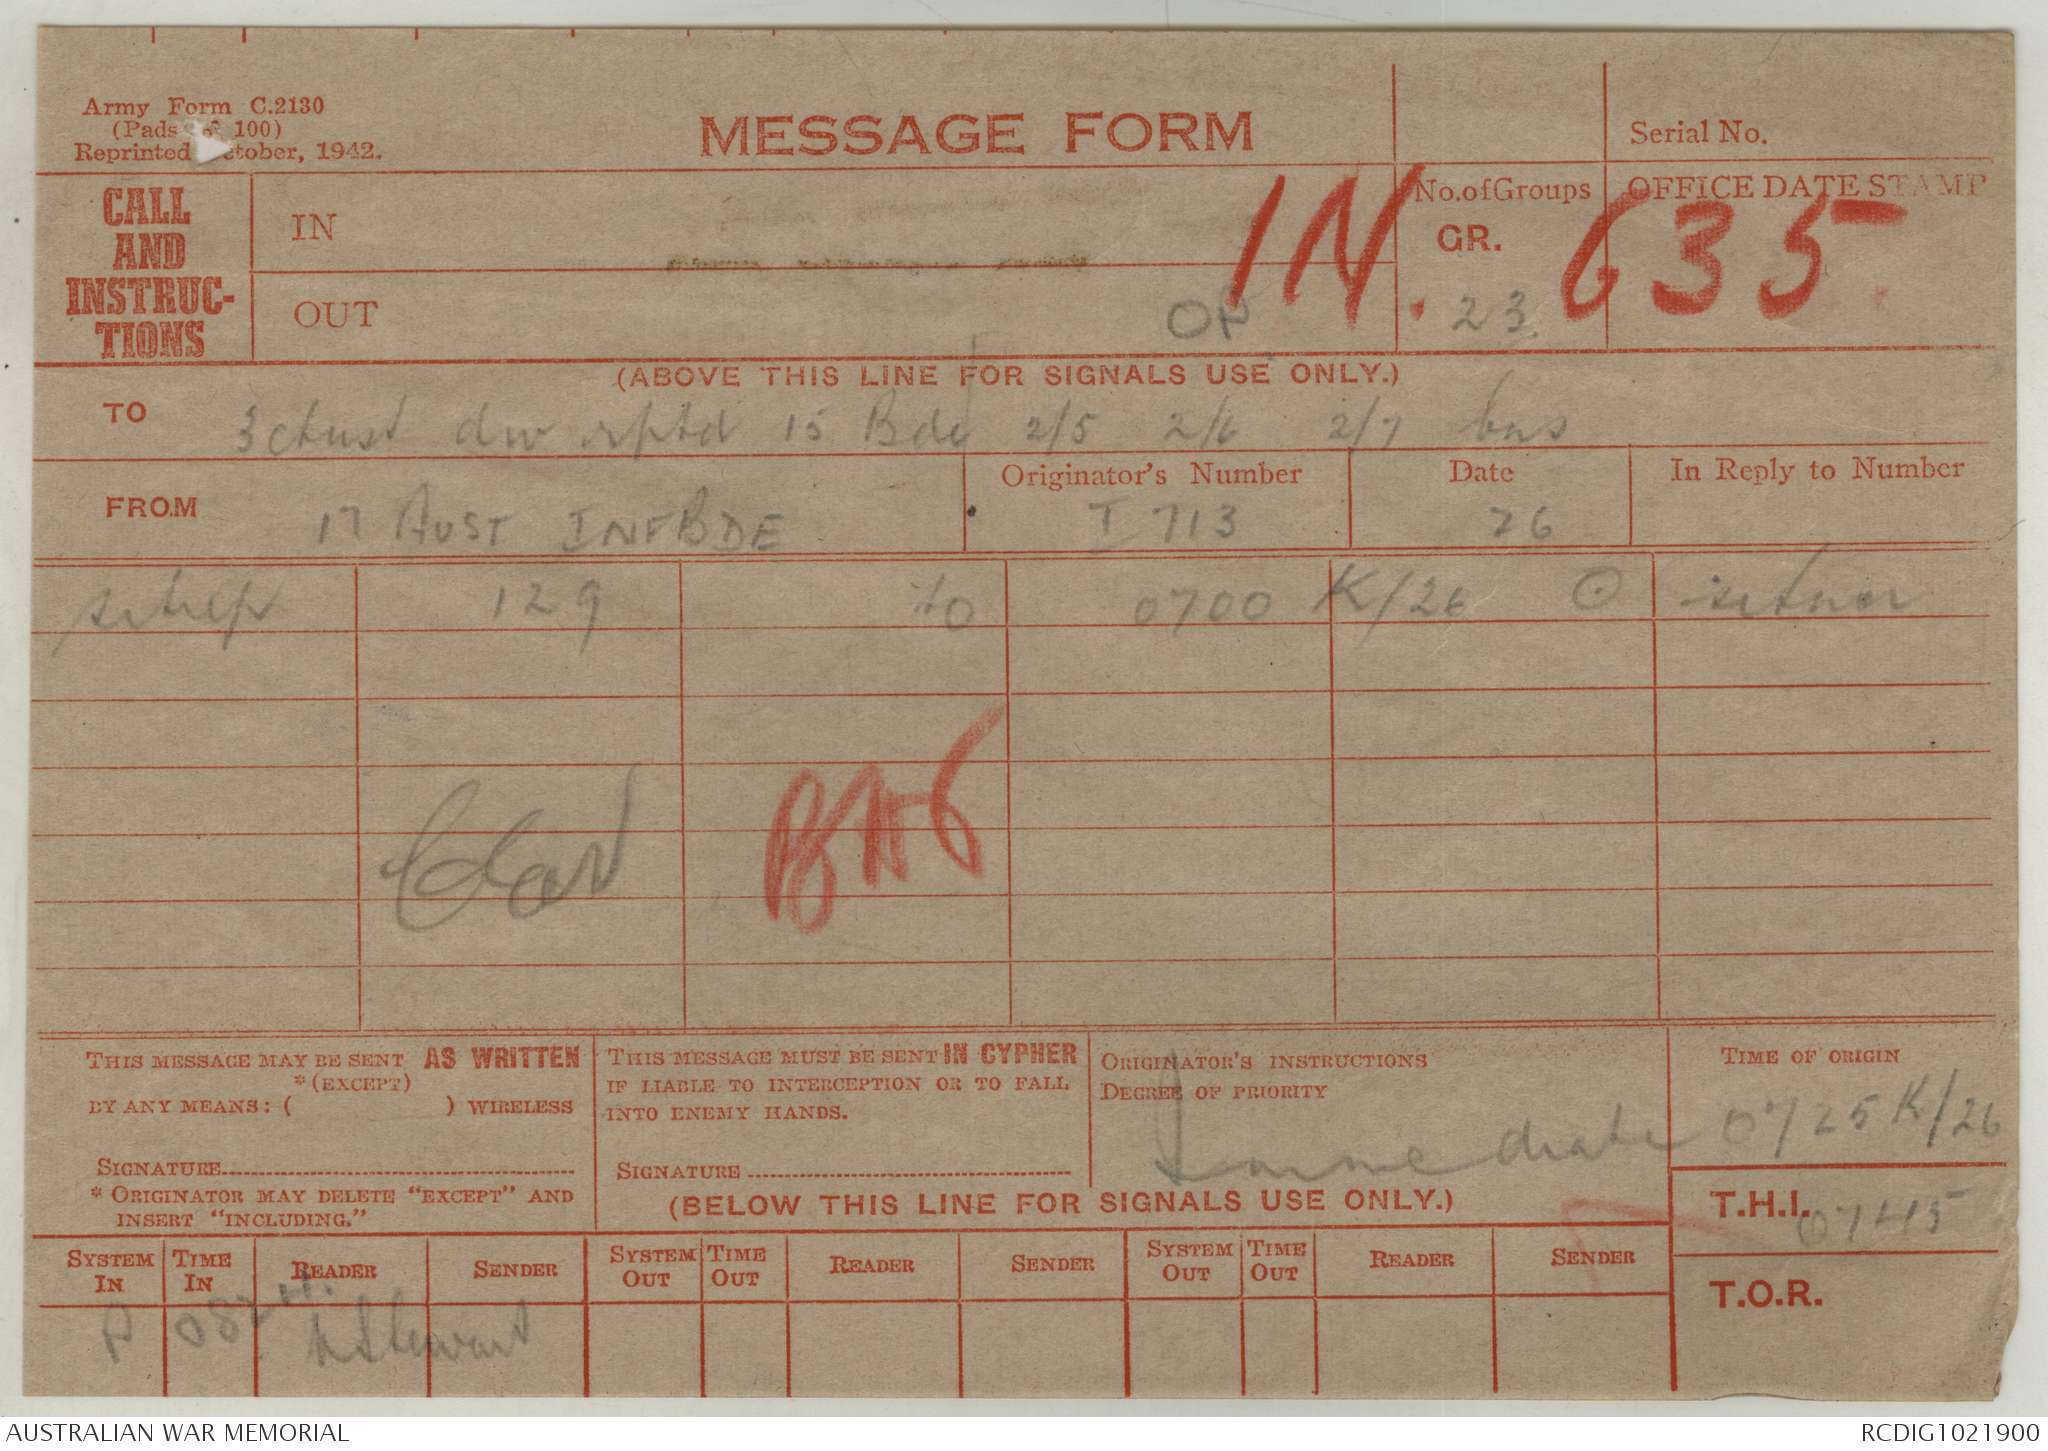 Army Form C.2130
(Pads of 100)
Reprinted October, 1942.
MESSAGE FORM
Serial No.
CALL AND INSTRUC-TIONS
IN
OUT
OP
IN. 635
No. of Groups
GR.
23
OFFICE DATE STAMP
(ABOVE THIS LINE FOR SIGNALS USE ONLY.)
TO 3 Aust div rptd 15 Bde 2/5 2/6 2/7 bns
FROM 17 AUST INF BDE
Originator's Number
I 713
Date
26
In Reply to Number
sitrep 129 to 0700 K/26 ⊙ sitnor
THIS MESSAGE MAY BE SENT AS WRITTEN
*(EXCEPT)
BY ANY MEANS: ( ) WIRELESS
SIGNATURE
* ORIGINATOR MAY DELETE "EXCEPT" AND
INSERT "INCLUDING."
THIS MESSAGE MUST BE SENT IN CYPHER
IF LIABLE TO INTERCEPTION OR TO FALL
INTO ENEMY HANDS.
SIGNATURE
ORIGINATOR'S INSTRUCTIONS
DEGREE OF PRIORITY
Immediate
TIME OF ORIGIN
0725 K/26
(BELOW THIS LINE FOR SIGNALS USE ONLY.)
T.H.I. 0745
T.O.R.
SYSTEM IN
TIME IN
READER
SENDER
SYSTEM OUT
TIME OUT
READER
SENDER
SYSTEM OUT
TIME OUT
READER
SENDER
P
Stewart
AUSTRALIAN WAR MEMORIAL
RCDIG1021900